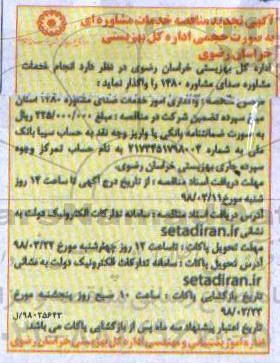 آگهی تجدید مناقصه خدمات مشاوره ای
به صورت حجمی اداره کل بهزیستی
خراسان رضوی
اداره کل بهزیستی خراسان رضوی در نظر دارد انجام خدمات
مشاوره صدای مشاوره ۱۴۸۰ را واگذار نماید :
موضوع مناقصه : واگذاری امور خدمات صدای مشاوره ۱۴۸۰ استان
مبلغ سپرده تضمین شرکت در مناقصه : مبلغ ۲۲۵/۰۰۰/۰۰۰ ریال
به صورت ضمانتنامه بانکی یا واریز وجه نقد به حساب سیبا بانک
ملی به شماره ۲۱۷۳۴۵۱۷۹۸۰۰۴ به نام حساب تمرکز وجوه
سپرده جاری بهزیستی خراسان رضوی.
مهلت دریافت اسناد مناقصه : از تاریخ درج آگهی تا ساعت ۱۴ روز
شنبه مورخ ۹۸/۰۳/۱۱
آدرس دریافت اسناد مناقصه : سامانه تدارکات الکترونیک دولت به
نشانی setadiran.ir
مهلت تحویل پاکات : تا ساعت ۱۴ روز چهارشنبه مورخ ۹۸/۰۳/۲۲
آدرس تحویل پاکات : سامانه تدارکات الکترونیک دولت به نشانی
setadiran.ir
تاریخ بازگشایی پاکات : ساعت ۱۰ صبح روز پنجشنبه مورخ
۹۸/۰۳/۲۳
مدت اعتبار پیشنهاد سه ماه پس از بازگشایی پاکات می باشد. ۹۸۰۲۵۶۴۳/ل
اداره امور پشتیبانی و مهندسی اداره کل بهزیستی خراسان رضوی